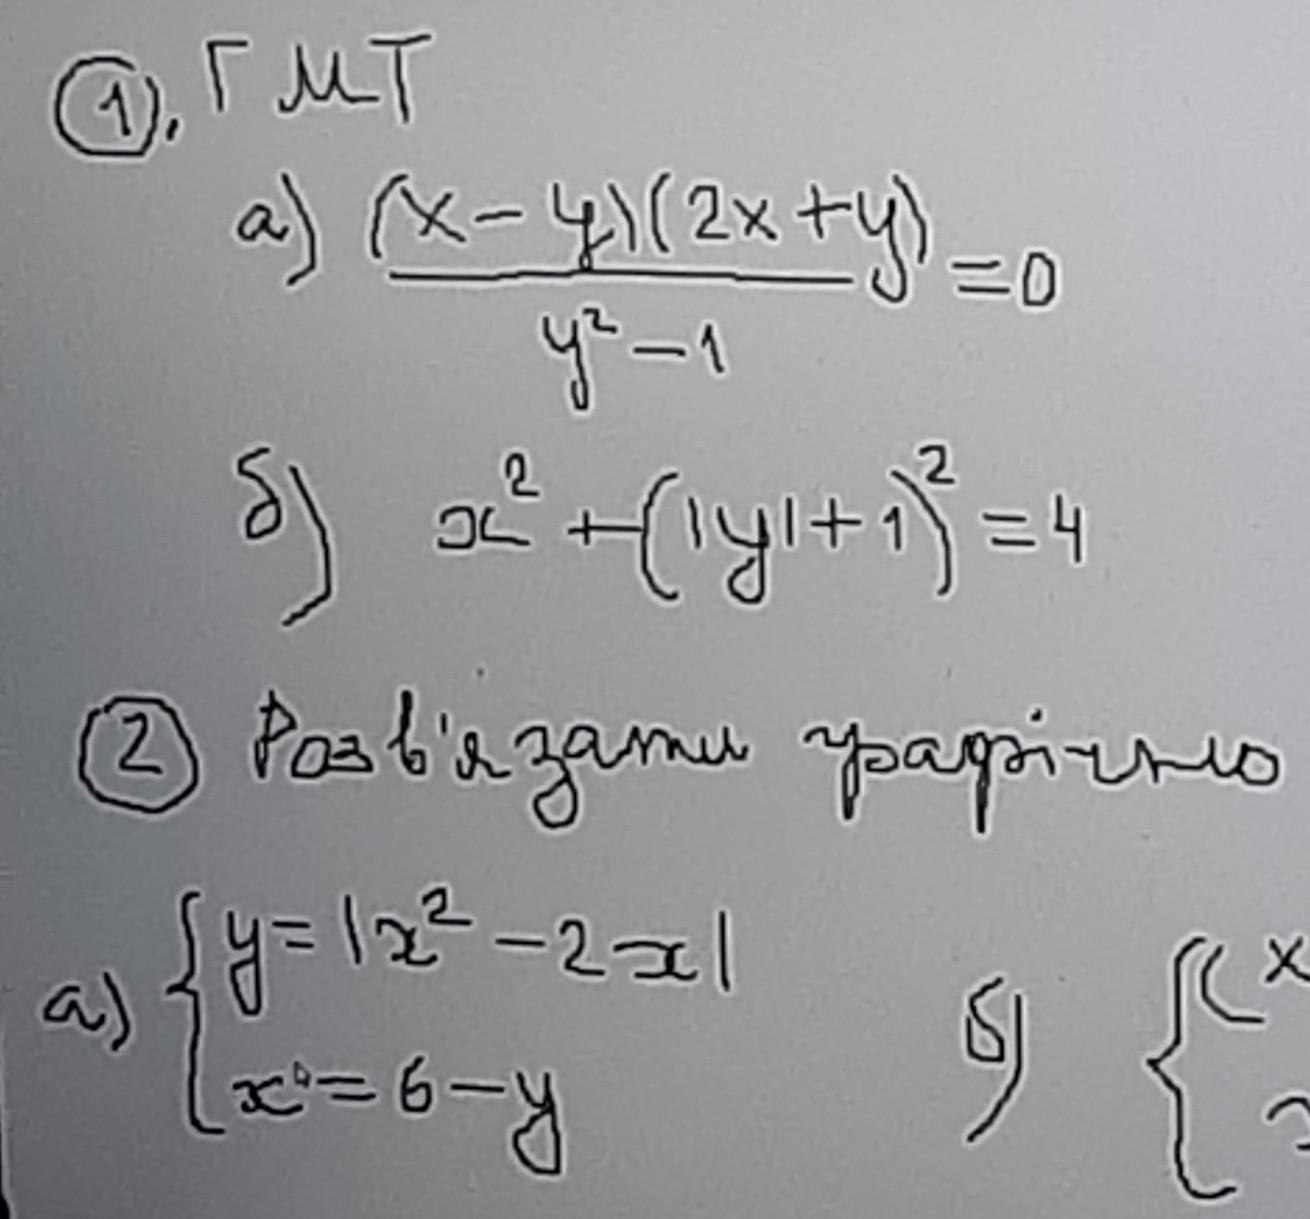 ①. ГМТ
а) (x - y)(2x + y) / y² - 1 = 0
б) x² + (|y| + 1)² = 4
② Розв'язати графічно
а) { y = |x² - 2x|
x = 6 - y
б) { (x